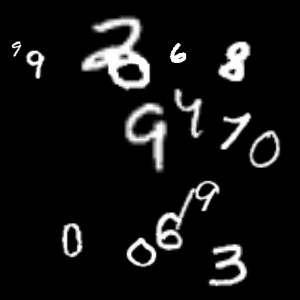 9 9 2 0 6 8
9 4 7 0
9
0 0 6 3